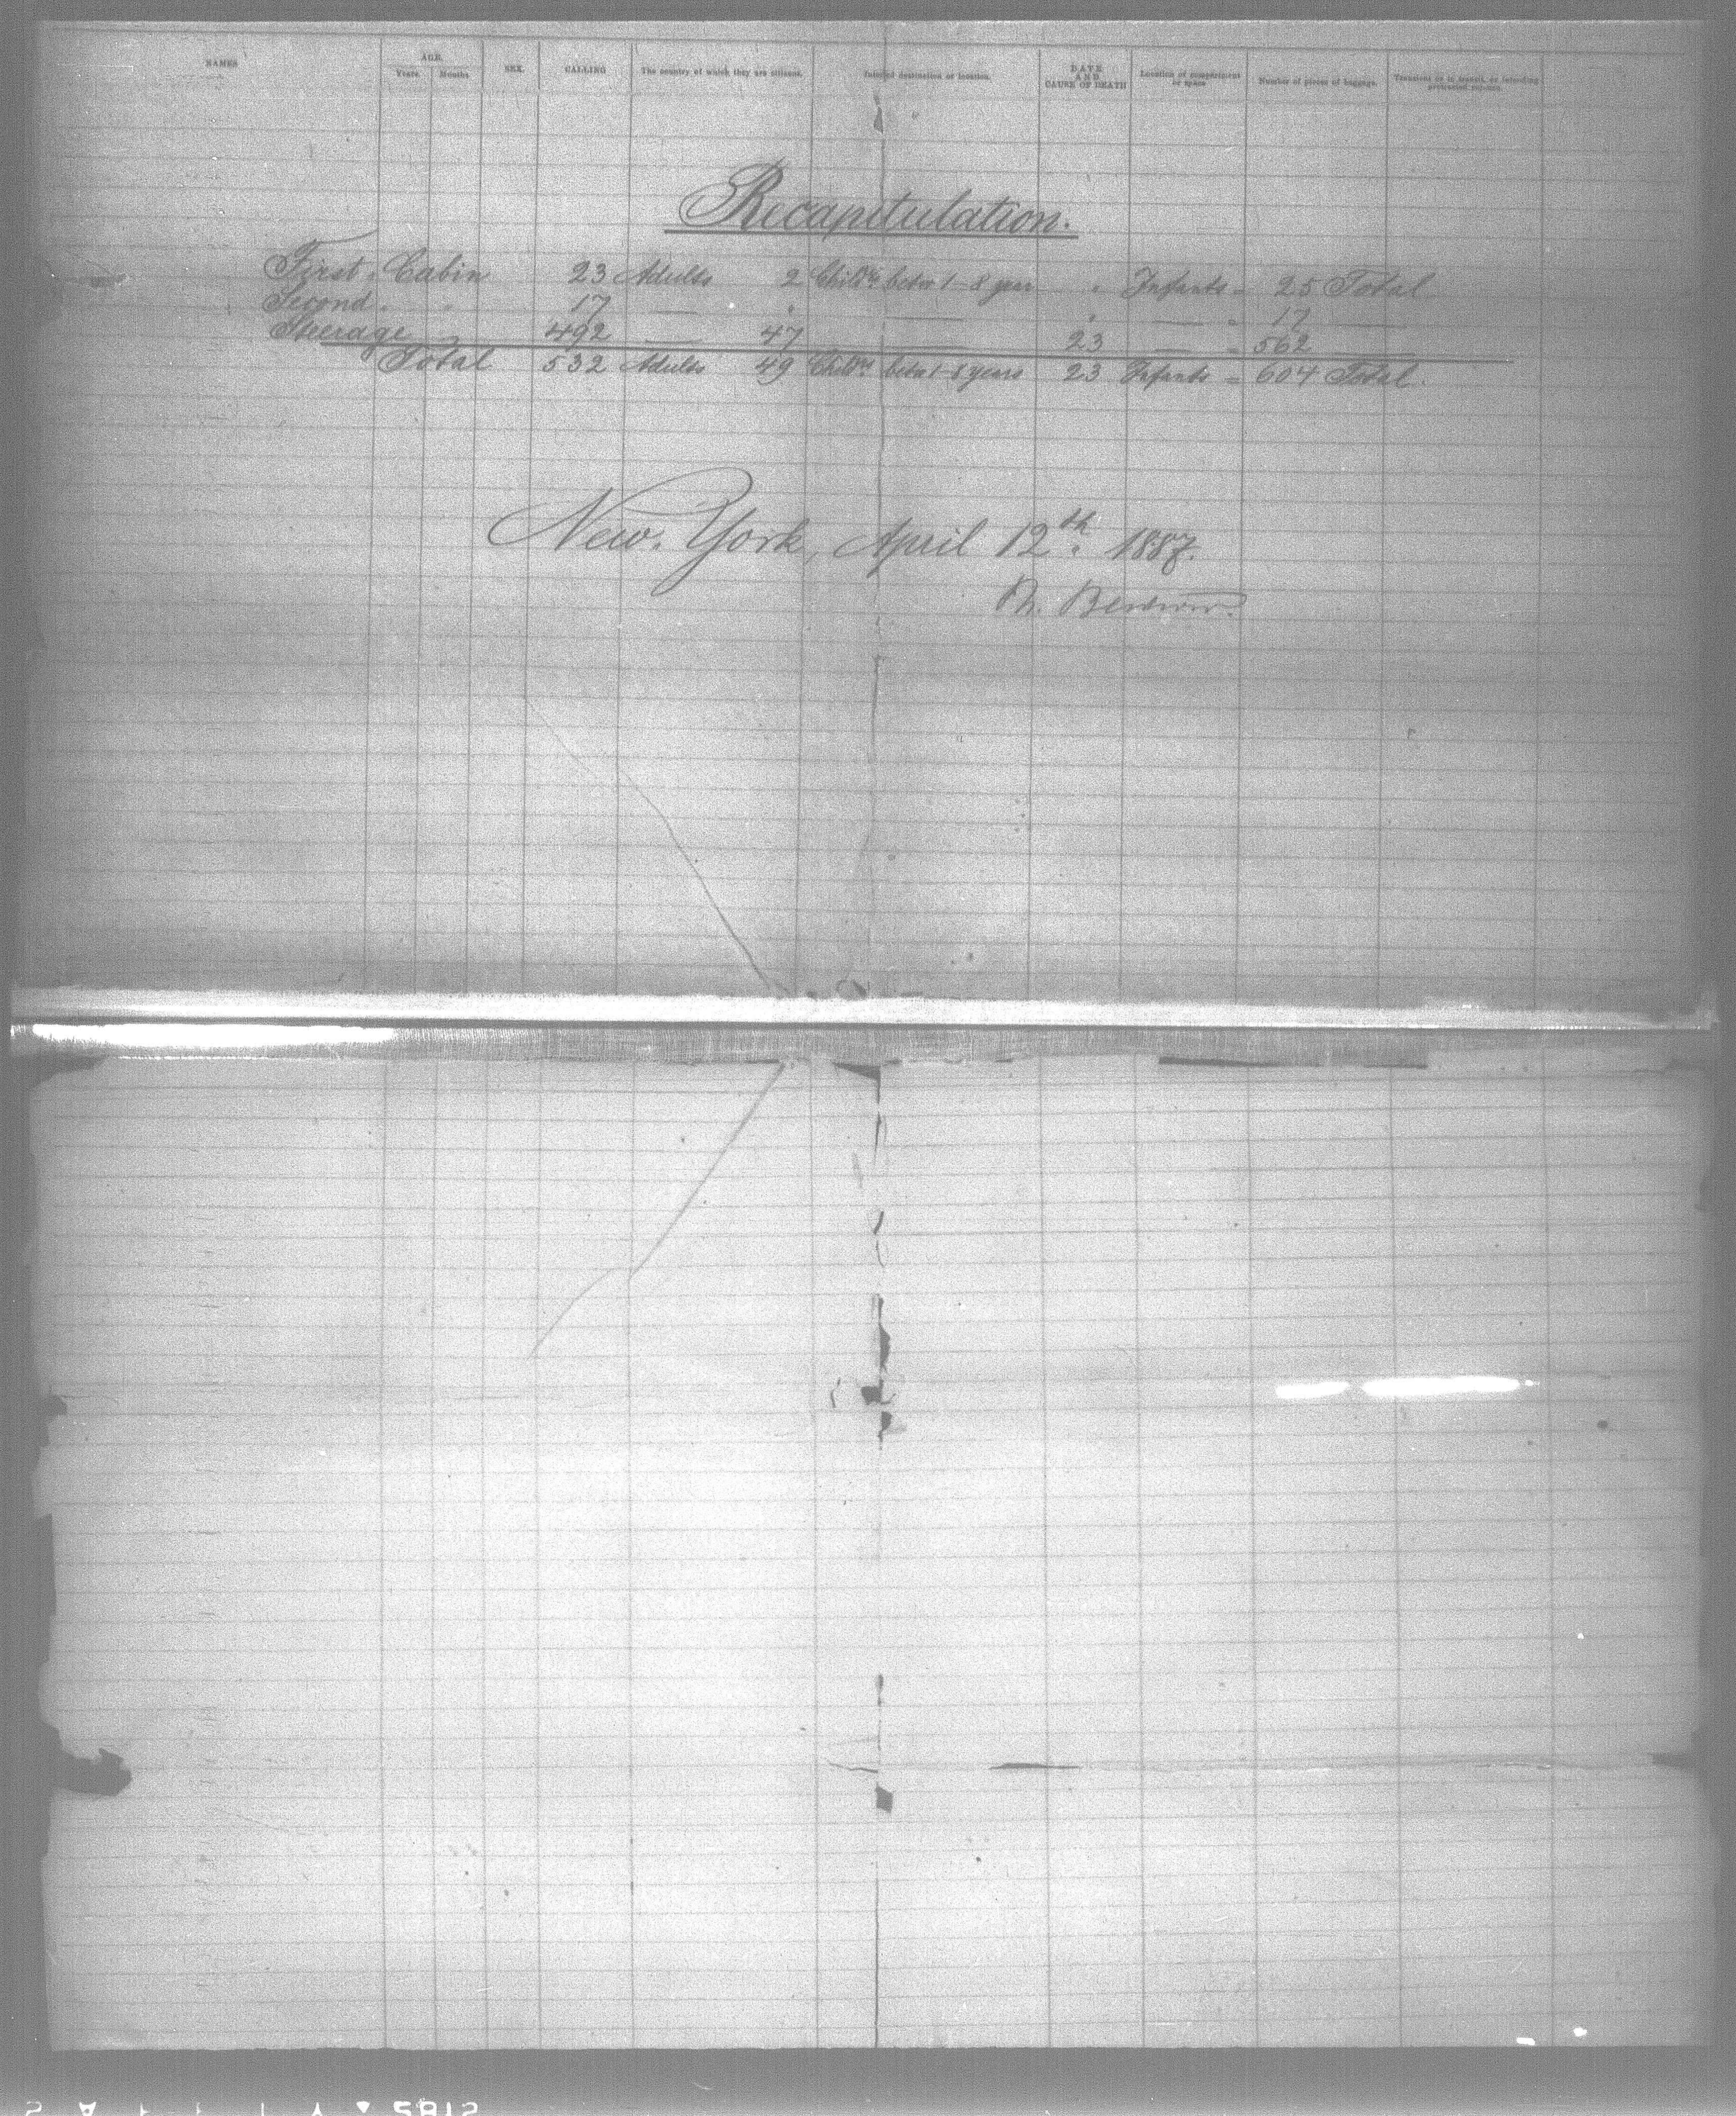 NAMES AGE. SEX. CALLING The country of which they are citizens. Intended destination or location. DATE AND CAUSE OF DEATH Location of compartment or space Number of pieces of baggage. Transient or in transit, or intending protracted sojourn.
Years. Months
Recapitulation.
First Cabin 23 Adults 2 Childrn betw 1-8 year " Infants = 25 Total
Second " " 17 — " — " — = 17 —
Steerage " 492 — 47 — 23 — = 562 —
Total 532 Adults 49 Childrn betw 1-8 years 23 Infants = 604 Total.
New York, April 12th 1887.